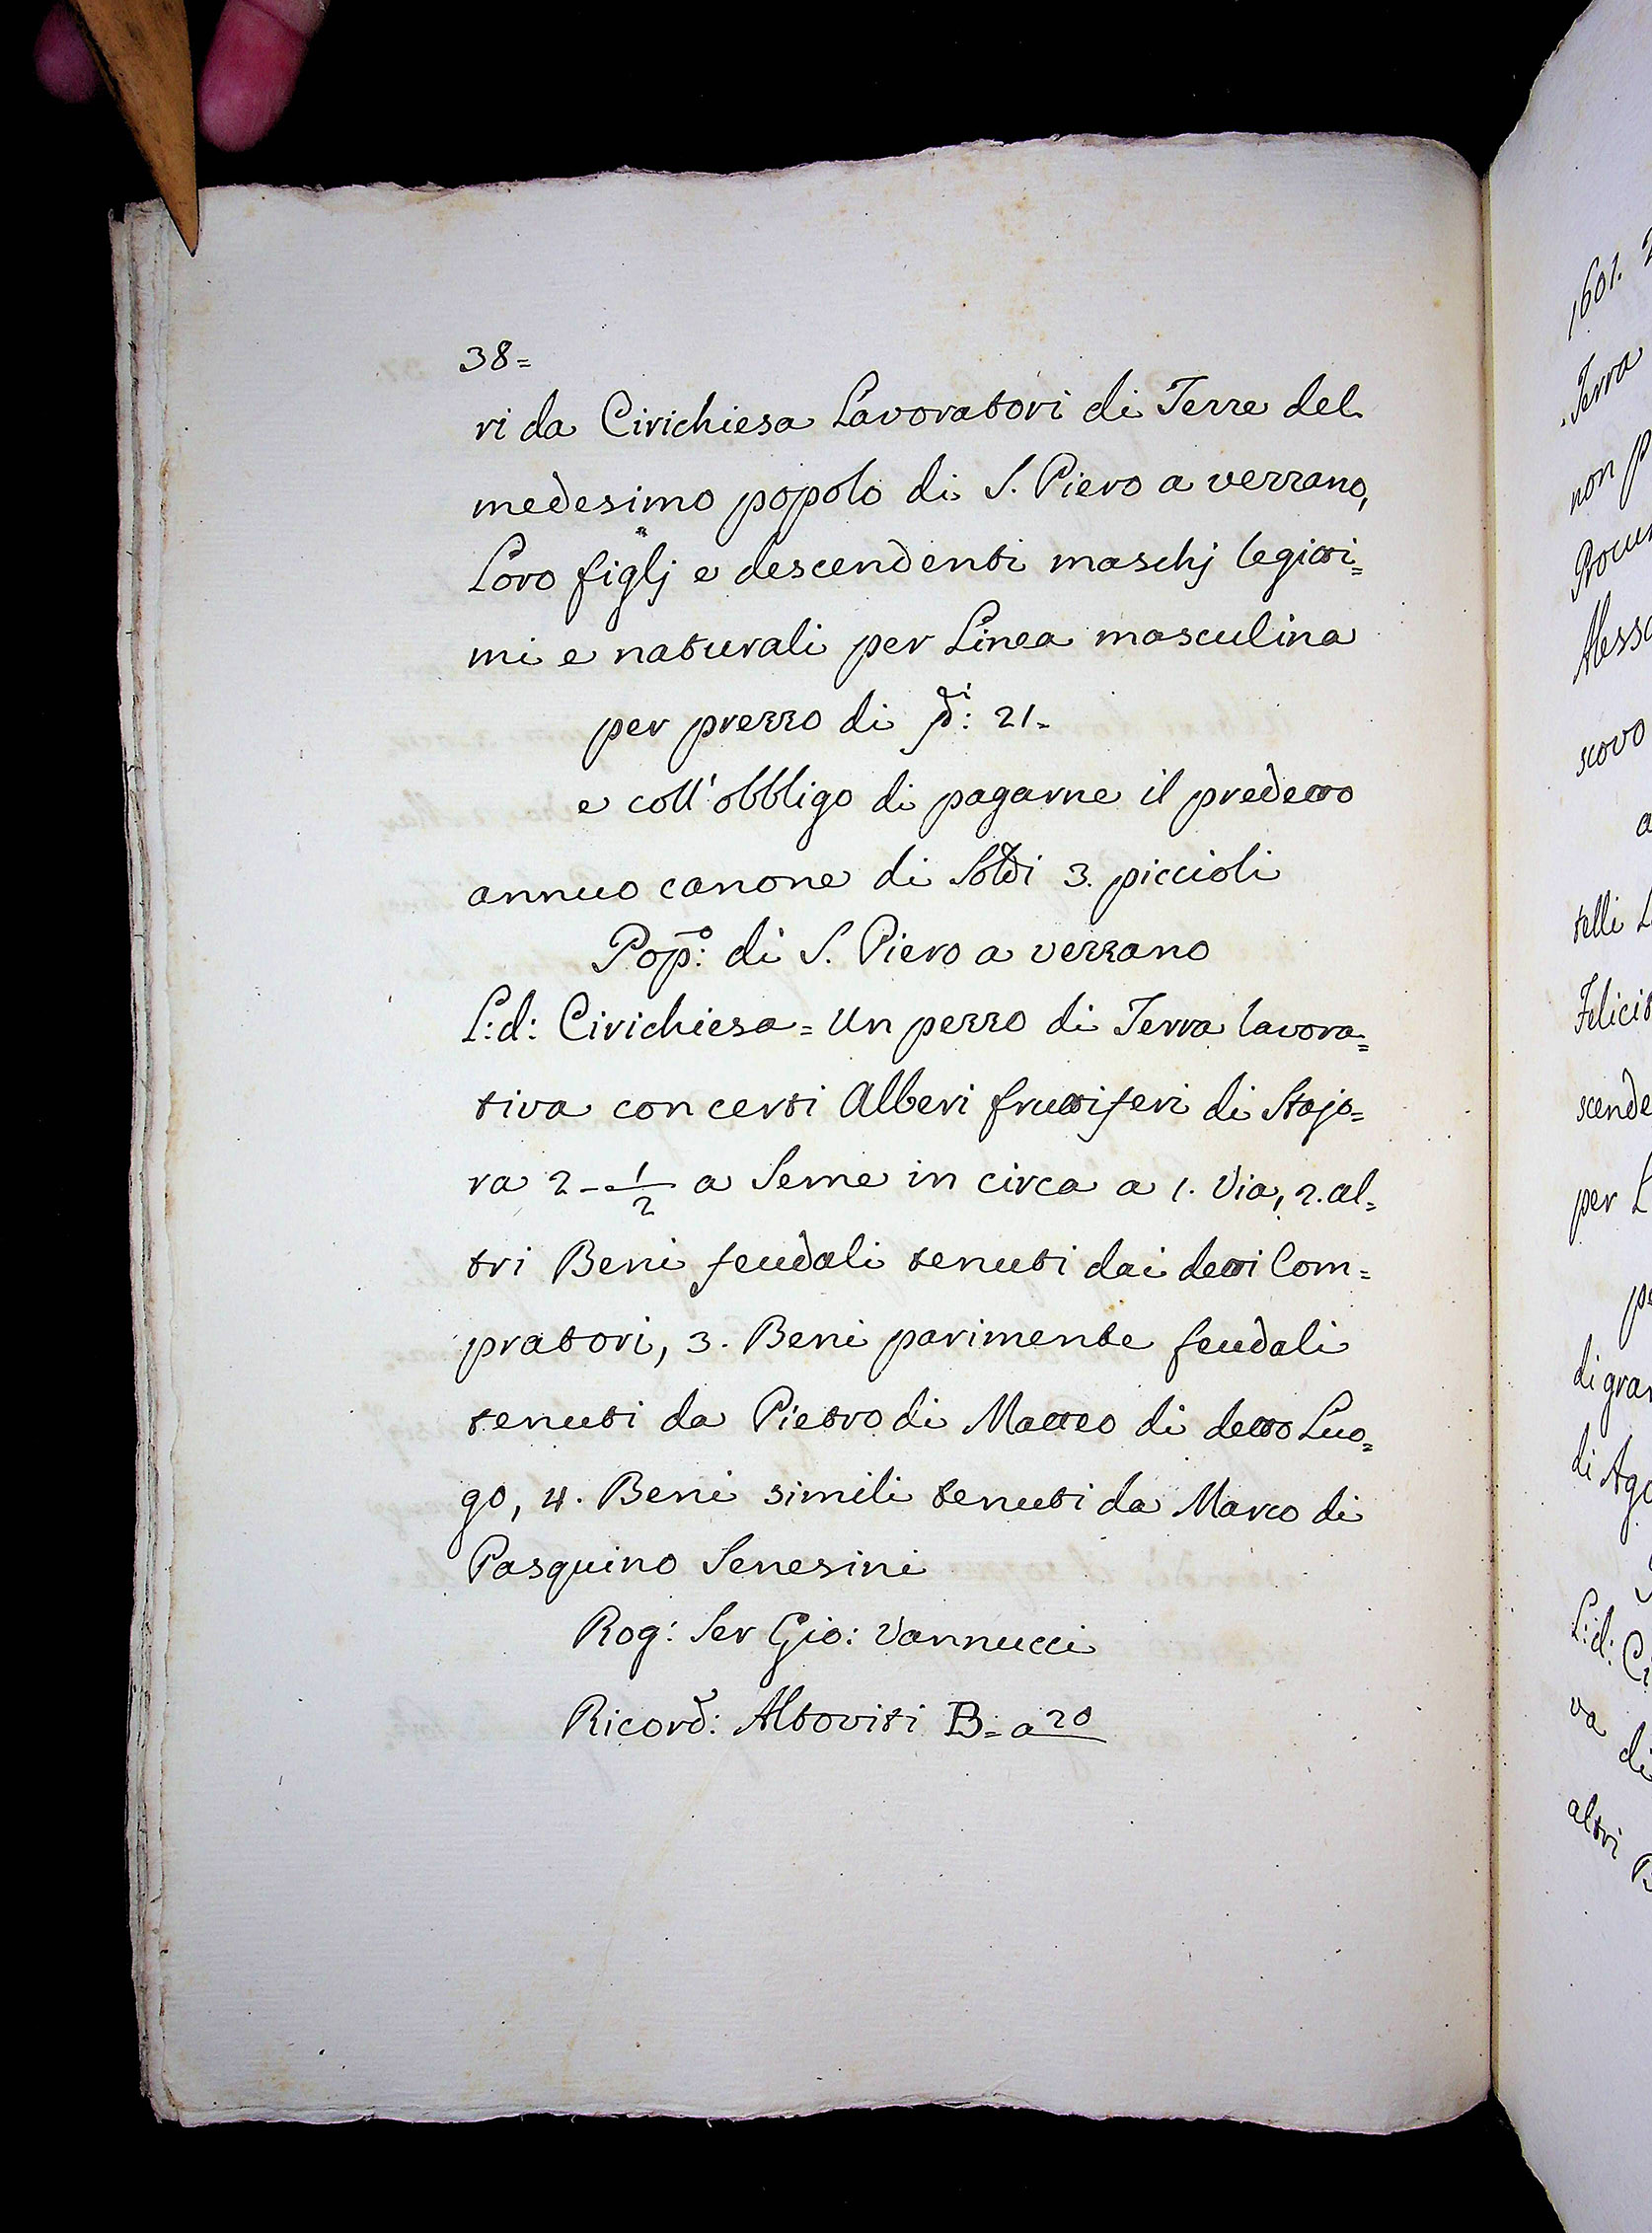 38=
ri da Cirichiesa Lavoratori di Terre del
medesimo popolo di S. Piero a verzano,
Loro figlj e descendenti maschj legitti=
mi e naturali per Linea masculina
per prezzo di ▽di: 21.
e coll'obbligo di pagarne il predetto
annuo canone di Soldi 3. piccioli
Pop:o di S. Piero a verzano
L:d: Cirichiesa = Un pezzo di Terra lavora=
tiva con certi Alberi fruttiferi di Stajo=
ra 2 - 1/2 a Seme in circa a 1. Via, 2. al=
tri Beni feudali tenuti dai detti Com=
pratori, 3. Beni parimente feudali
tenuti da Pietro di Matteo di detto Luo=
go, 4. Beni simili tenuti da Marco di
Pasquino Senesini
Rog: Ser Gio: Vannucci
Ricord: Altoviti B= a 20
1601.
Terra
non p
Procur
Aless
scovo
a
telli L
Felicit
scende
per L
pe
di gra
di Ago
L:d: Ci
va di
altri B